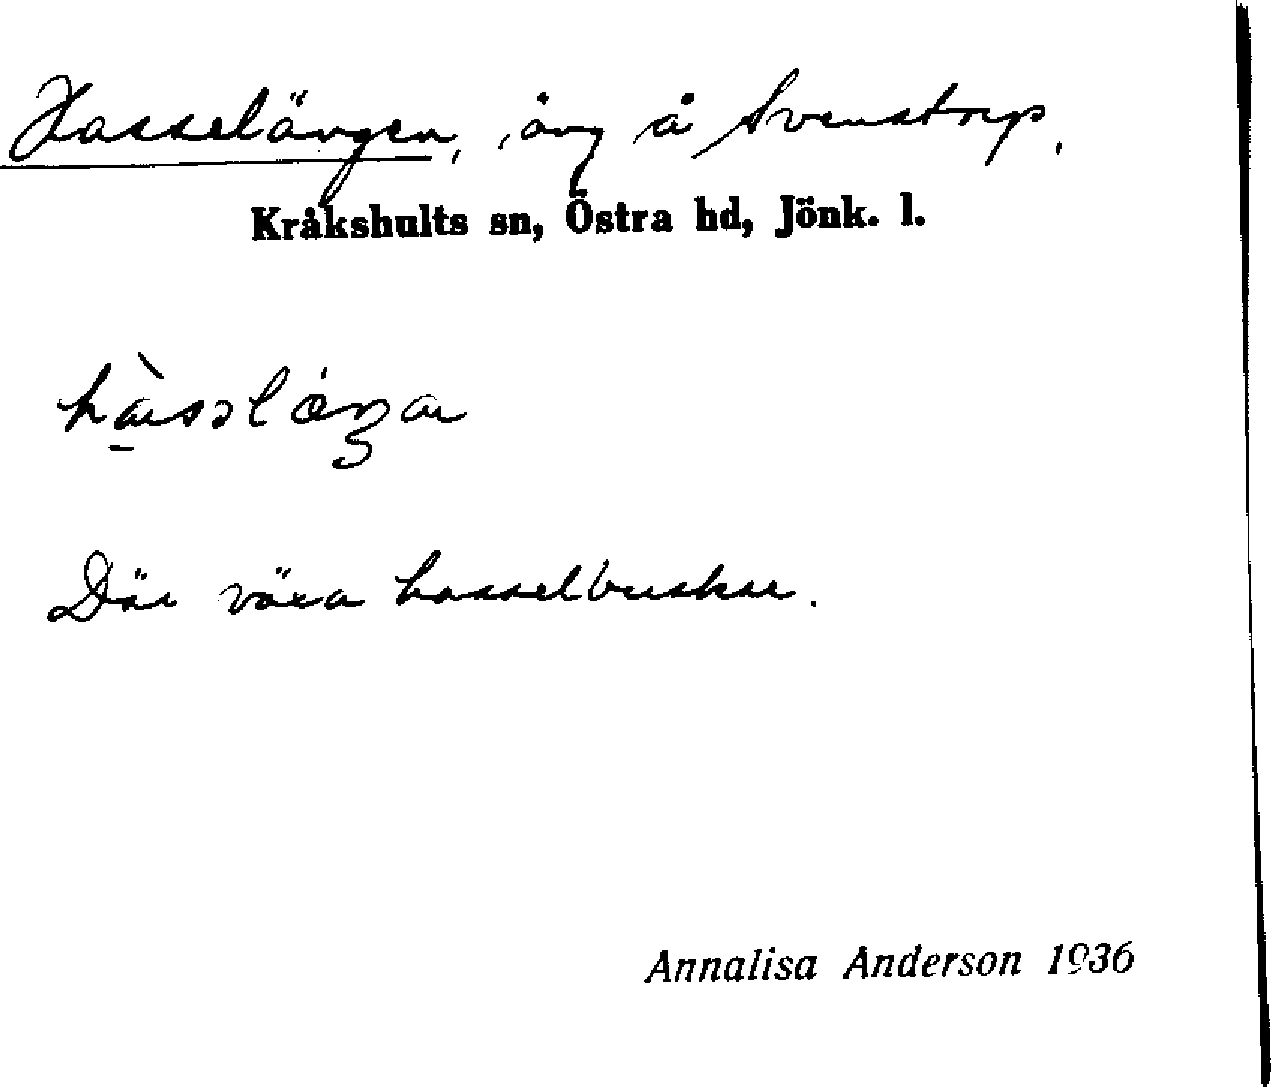 Hasselängen, äng å Svenstorp.
Kråkshults sn, Östra hd, Jönk. l.
Där växa hasselbuskar.
Annalisa Anderson 1936